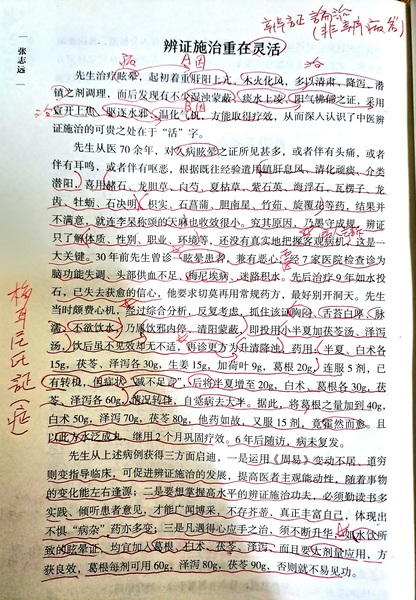 张志远
辨证施治重在灵活
先生治疗眩晕，起初着重肝阳上亢，木火化风，多以清肃、降泻、潜
镇之剂调理，而后发现有不少湿浊蒙蔽、痰水上凌、阳气拂郁之证，采用
宣开上焦、驱逐水邪、温化气机，方能取得疗效，从而深入认识了中医辨
证施治的可贵之处在于“活”字。
先生从医 70 余年，对久病眩晕之证所见甚多，或者伴有头痛，或者
伴有耳鸣，或者伴有呕恶，根据既往经验遣用镇肝息风、清化顽痰、介类
潜阳，喜用赭石、龙胆草、白芍、夏枯草、紫石英、海浮石、瓦楞子、龙
齿、牡蛎、石决明、枳实、石菖蒲、胆南星、竹茹、旋覆花等药，结果并
不满意，就连李杲称颂的天麻也收效很小。究其原因，乃墨守成规，辨证
只了解体质、性别、职业、环境等，还没有真实地把握客观病机，这是一
大关键。30 年前先生曾诊一眩晕患者，兼有恶心，经 7 家医院检查诊为
脑功能失调、头部供血不足、梅尼埃病、迷路积水。先后治疗 9 年如水投
石，已失去获愈的信心，他要求切莫再用常规药方，最好别开洞天。先生
当时颇费心机，经过综合分析，反复考虑，抓住该证胸闷、舌苔白厚、脉
濡、不欲饮水，乃属饮邪内停、清阳蒙蔽，即投用小半夏加茯苓汤、泽泻
汤，饮后虽不见效却无不适，再诊更方为升清降浊，药用：半夏、白术各
15g，茯苓、泽泻各 30g，生姜 15g，加荷叶 9g，葛根 20g，连服 5 剂，已
有转机，但症状“减不足言”，后将半夏增至 20g，白术、葛根各 30g，茯
苓、泽泻各 60g，情况转佳，自觉病去大半。据此，将葛根之量加到 40g，
白术 50g，泽泻 70g，茯苓 80g，他药如故，又服 15 剂，竟霍然而愈。且
以此方水泛成丸，继用 2 个月巩固疗效。6 年后随访，病未复发。
先生从上述病例获得三方面启迪，一是运用《周易》变动不居，道穷
则变指导临床，可促进辨证施治的发展，提高医者主观能动性，随着事物
的变化能左右逢源；二是要想掌握高水平的辨证施治功夫，必须勤读书多
实践，倾听患者意见，才能广闻博采，不存芥蒂，真正丰富自己，体现出
不惧“病杂”药亦多变；三是凡遇得心应手之治，须不断升华，如水饮所
致的眩晕证，均宜加入葛根、白术、茯苓、泽泻，而且要大剂量应用，方
获良效，葛根每剂可用 60g，泽泻 80g，茯苓 90g，否则就不易见功。